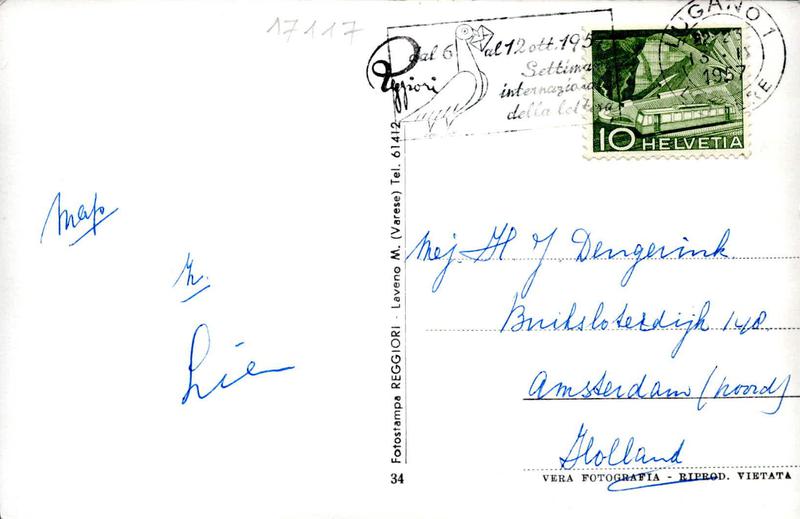 17117
dal 6 al 12 ott. 195
Settiman
internaziona
della lettera
Reggiori
LUGANO 1
1957
10 HELVETIA
Fotostampa REGGIORI - Laveno M. (Varese) Tel. 61412
Mej. H J. Dengerink
Buiksloterdijk 148
Amsterdam (noord)
Holland
Lien
34
VERA FOTOGRAFIA - RIPROD. VIETATA